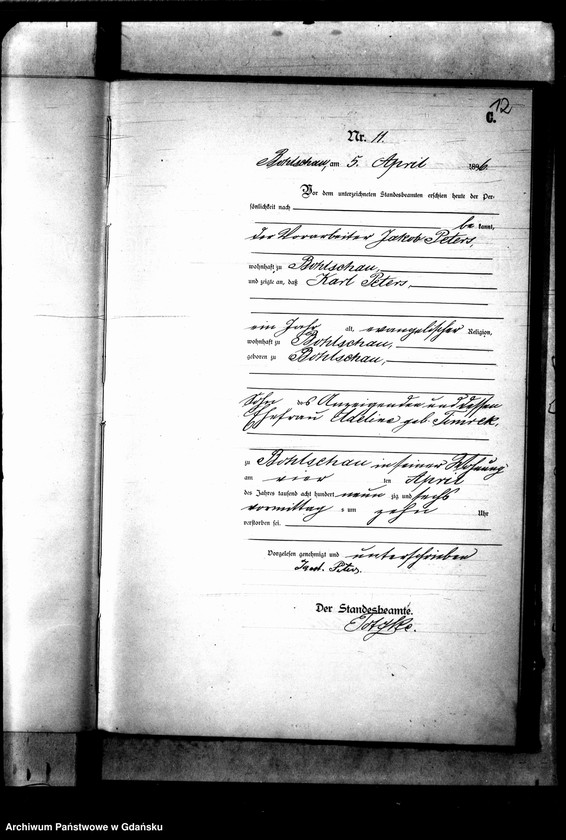 12
C.
Nr. 11.
Bohlschau, am 5. April 1896.
Vor dem unterzeichneten Standesbeamten erschien heute der Per-
sönlichkeit nach
be kannt,
der Vorarbeiter Jakob Peters,
wohnhaft zu Bohlschau,
und zeigte an, daß Karl Peters,
ein Jahr alt, evangelischer Religion,
wohnhaft zu Bohlschau,
geboren zu Bohlschau,
Sohn des Anzeigenden und dessen
Ehefrau geb.
zu Bohlschau in seiner Wohnung
am vier ten April
des Jahres tausend acht hundert neun zig und sechs
vormittag s um zehn Uhr
verstorben sei.
Vorgelesen, genehmigt und unterschrieben
Peters.
Der Standesbeamte.
Archiwum Państwowe w Gdańsku